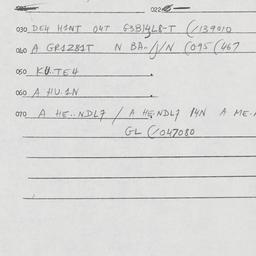 022
030 DE4 H1NT 04T G3B14L8-T (/139010
040 A GR1Z81T N BA../J/N (095(467
050 KU.TE4
060 A HU.1N
070 A HE..NDL7 / A HE.NDL7 14N A ME.
GL (/047080